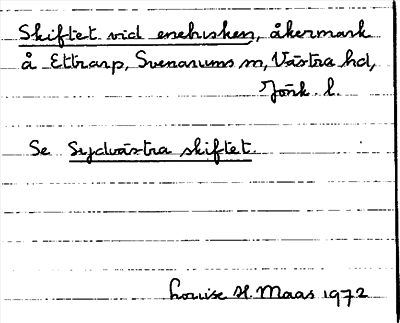 Skiftet vid enebusken, åkermark
å Ettrarp, Svenarums sn, Västra hd,
Jönk. l.
Se Sydvästra skiftet.
Louise H. Maas 1972